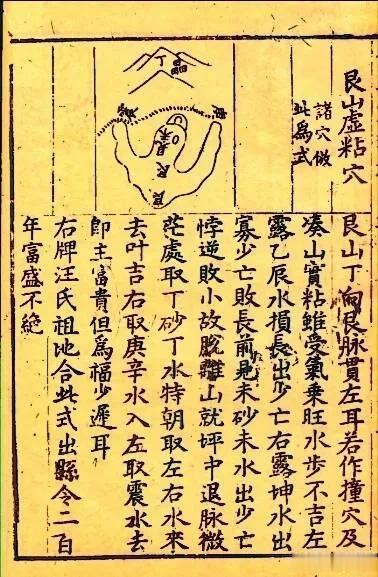 艮山虛粘穴
諸穴倣
此為式
丁
艮
艮
艮山丁向艮脉貫左耳若作撞穴及
凑山實粘雖受氣乘旺水步不吉左
露乙辰水損長出少亡右露坤水出
寡少亡敗長前見未砂未水出少亡
悖逆敗小故脫離山就坪中退脉微
茫處取丁砂丁水特朝取左右水來
去叶吉右取庚辛水入左取震水去
即主富貴但為福少遲耳
右牌汪氏祖地合此式出縣令二百
年富盛不絶